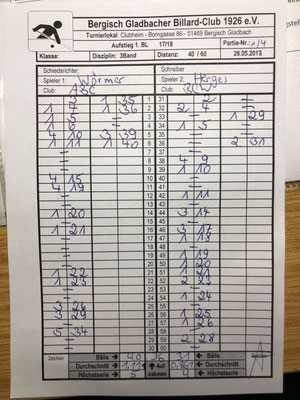 Bergisch Gladbacher Billard-Club 1926 e.V.
Turnierlokal: Clubheim - Borngasse 86 - 51469 Bergisch Gladbach
Aufstieg 1. BL 17/18 Partie-Nr.:
Klasse: Disziplin: 3Band Distanz: 40 / 60 26.05.2017
Schiedsrichter: Schreiber
Spieler 1: Wörmer Spieler 2: Herger
Club: ABC Club: BCW
1 35 1 31
1 36 2 32
3 33 1 29
4 34 1 5
4 10 3 39 5 35
1 11 1 40 6 36 2 31
7 37
8 38 4 9
9 39 1 10
4 15 10 40
4 19 11 41
12 42 1 11
13 43
1 20 14 44 3 14
15 45
1 21 16 46 3 17
17 47 1 18
18 48
19 49 1 19
20 50 1 20
21 51 1 21
1 22 22 52
1 23 23 53 2 23
24 54 1 24
25 55
3 26 26 56 1 25
3 29 27 57 1 26
28 58
5 34 29 59 2 28
30 60
Zeichen Bälle 40 36 31
Durchschnitt 1,111 Auf- 0,861
Höchstserie 5 nahmen 4